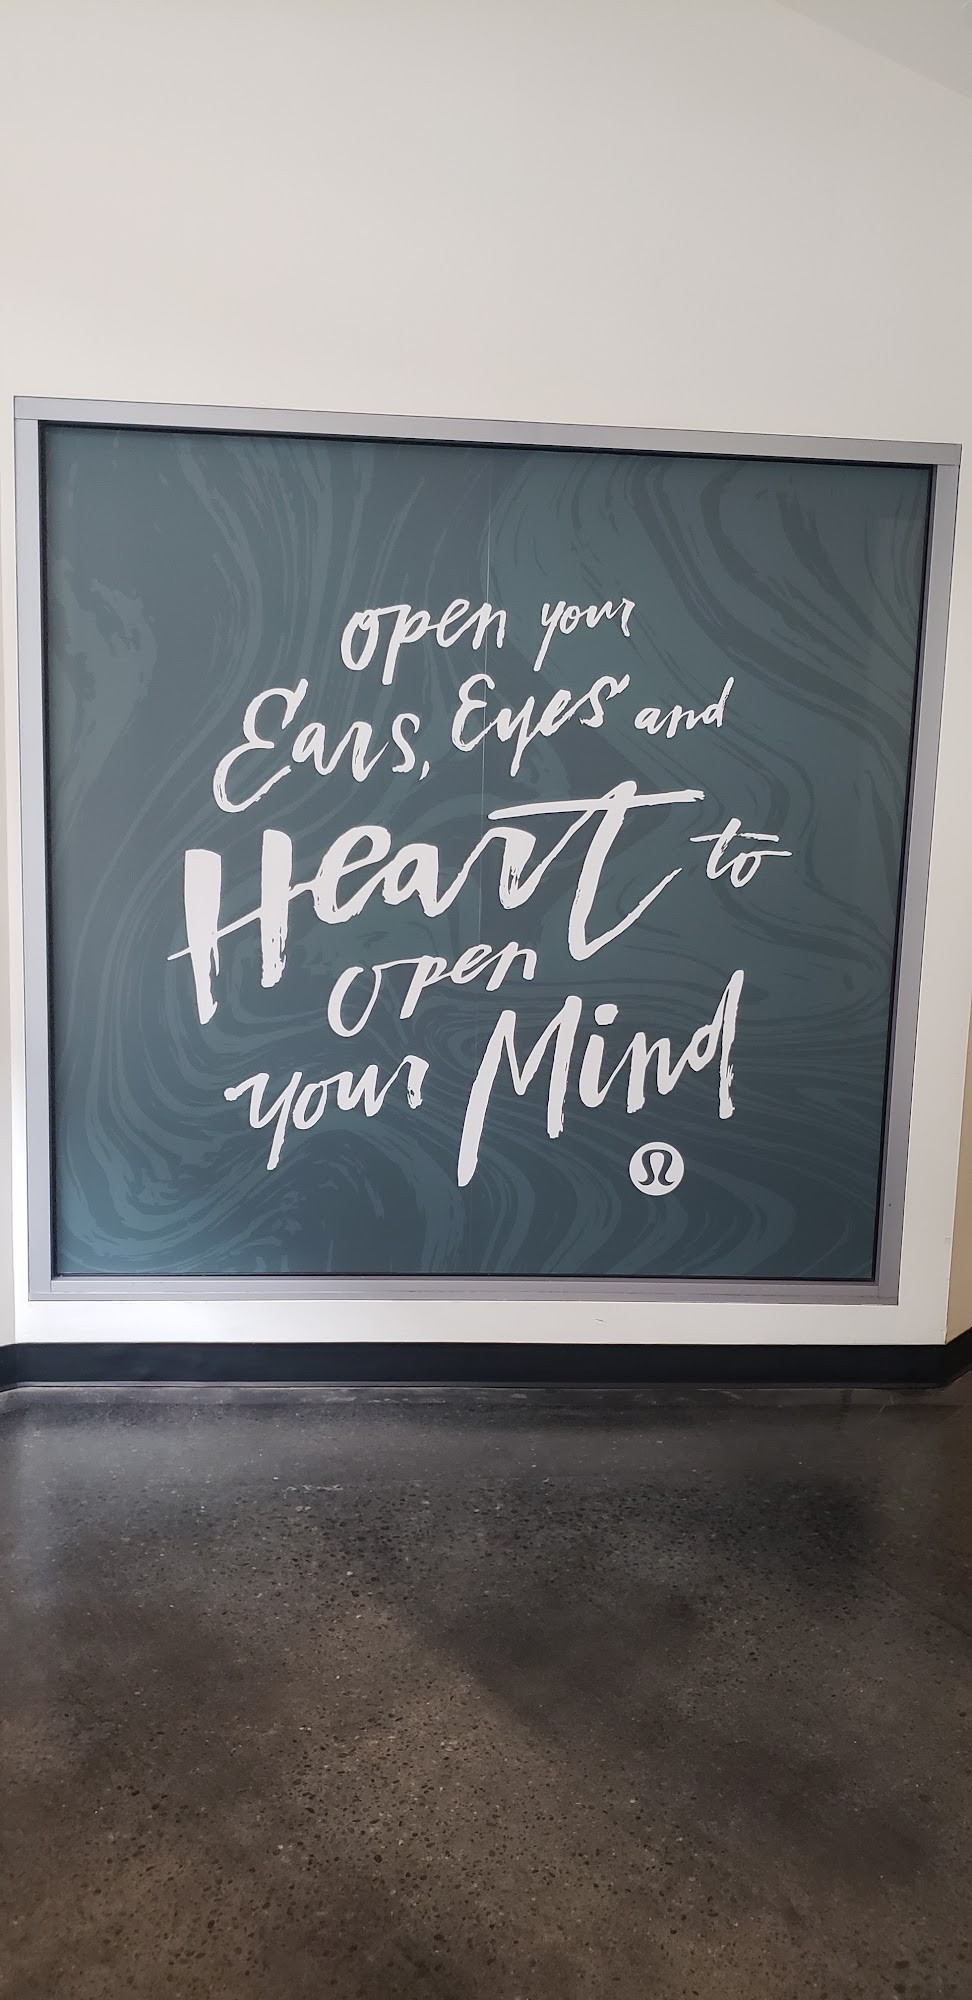 open your
Ears, Eyes and
Heart to
open
your Mind